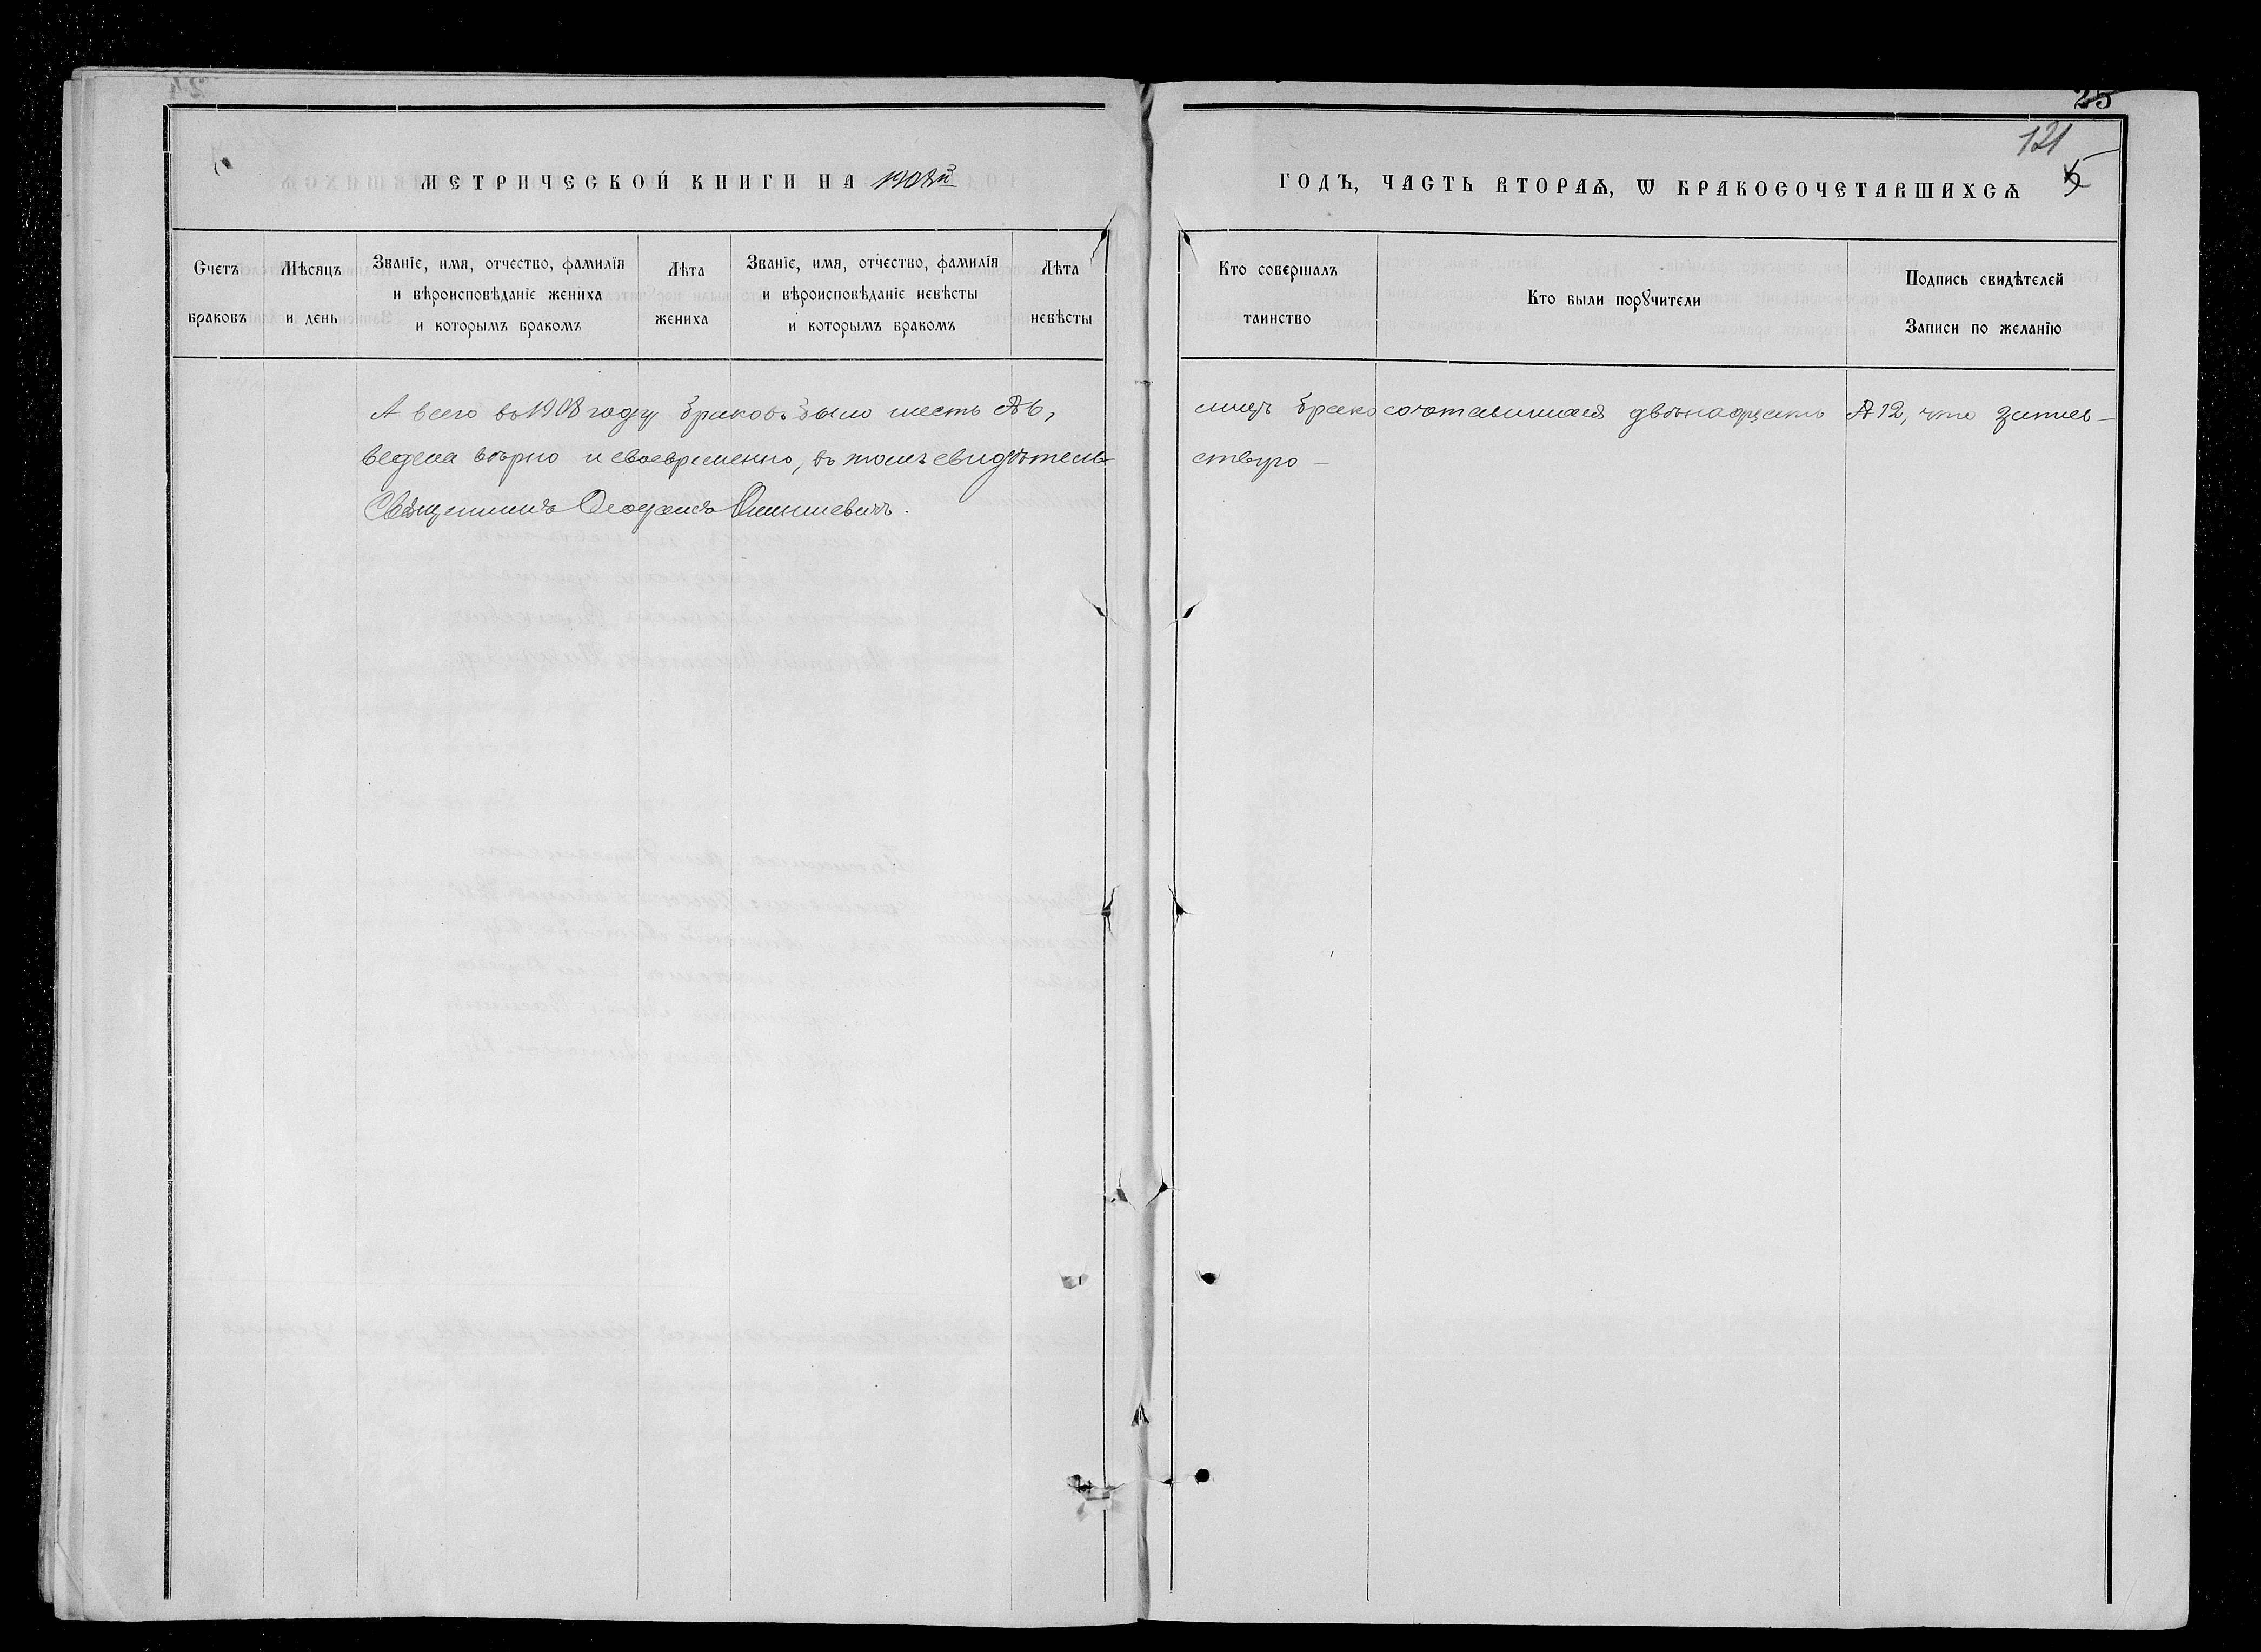 25
121
МЕТРИЧЕСКОЙ КНИГИ НА 1908й
ГОДЪ, ЧАСТЬ ВТОРАѦ, Ѡ БРАКОСОЧЕТАВШИХСѦ
Счетъ браковъ
Мѣсяцъ и день
Званіе, имя, отчество, фамилія
и вѣроисповѣданіе жениха
и которымъ бракомъ
Лѣта
жениха
Званіе, имя, отчество, фамилія
и вѣроисповѣданіе невѣсты
и которымъ бракомъ
Лѣта
невѣсты
Кто совершалъ
таинство
Кто были порꙋчители
Подпись свидѣтелей
Записи по желанію
А всего въ 1908 году браковъ было шесть № 6, лицъ бракосочетавшихся двѣнадцать № 12, что запись
ведена вѣрно и своевременно, въ томъ свидѣтель-ствую –
Священникъ